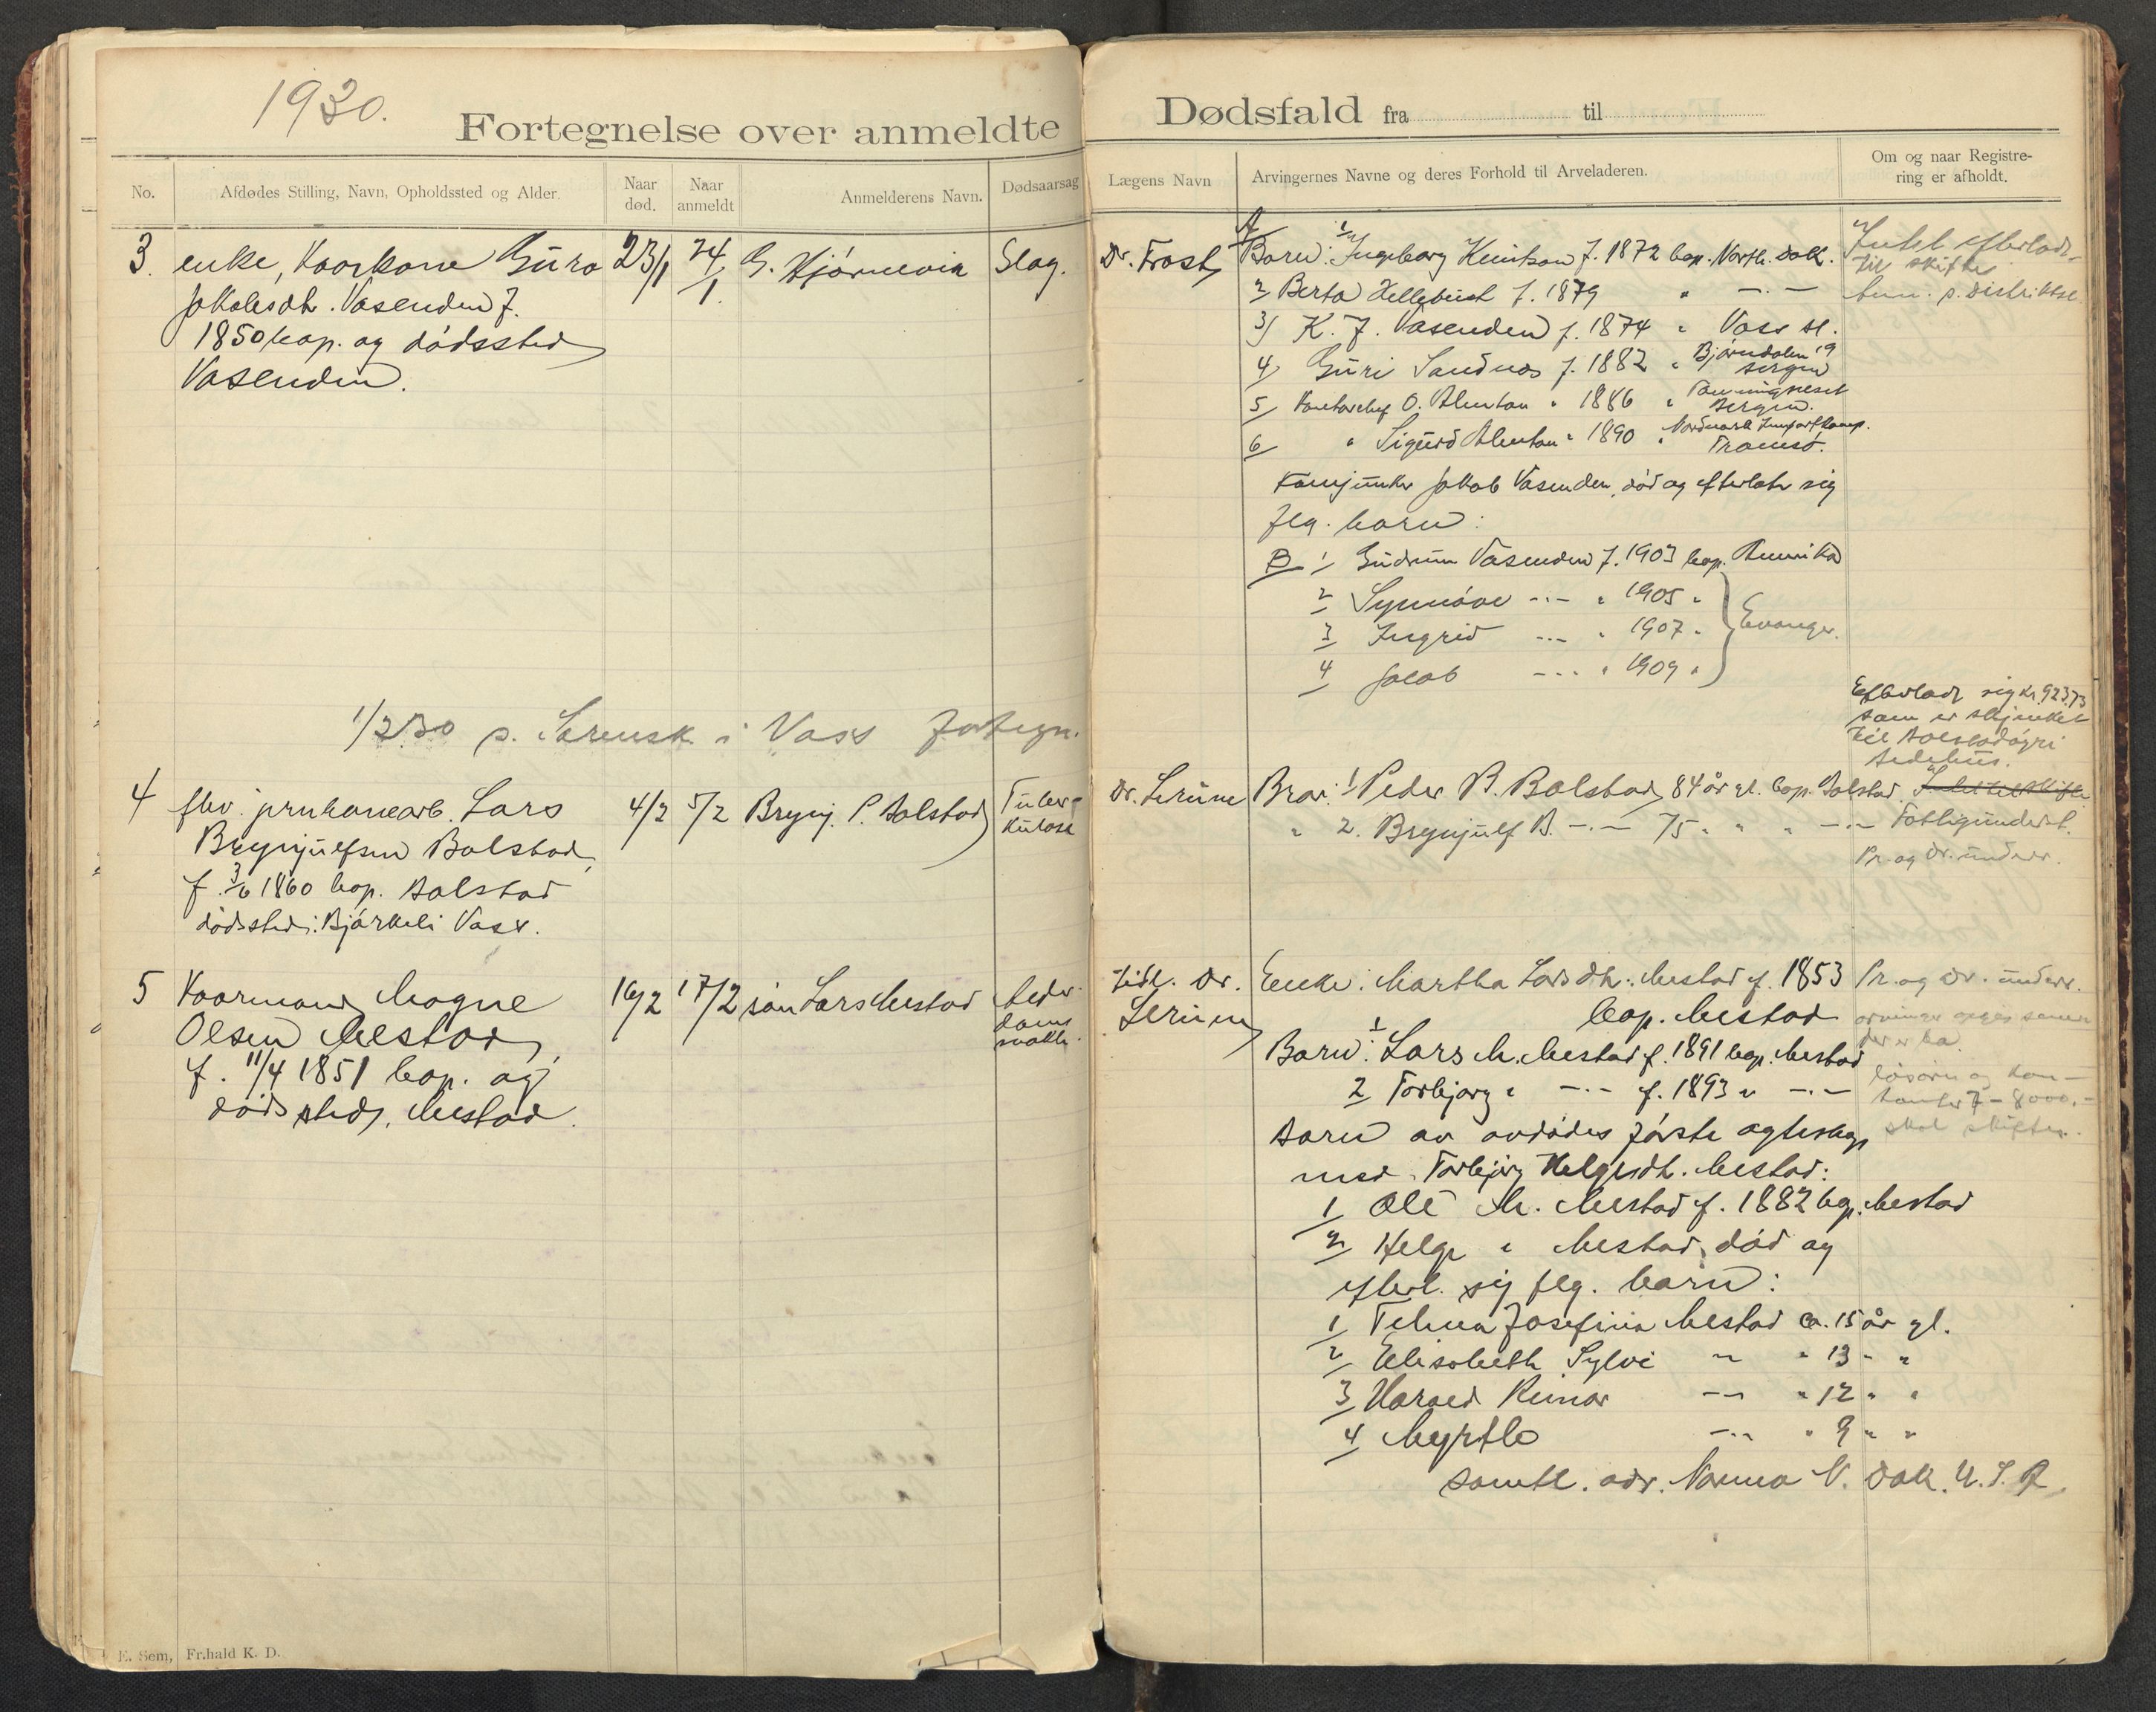 1930.
Fortegnelse over anmeldte
Dødsfald fra til
No.
Afdødes Stilling, Navn, Opholdssted og Alder.
Naar død.
Naar anmeldt
Anmelderens Navn.
Dødsaarsag
Lægens Navn
Arvingernes Navne og deres Forhold til Arveladeren.
Om og naar Registrering er afholdt.
3. enke, Kaarkone Guro 23/1 24/1. G. Hjørnevik Slag.
Jakobsdtr. Vasenden f.
1850 bop. og dødssted
Vasenden.
Dr. Frost
A
Barn: 1/ Ingeborg Knutson f. 1872 bop. North. Dak.
2/ Berta Hellebust f. 1879 " -"-
3/ K. J. Vasenden f. 1874 " Voss st.
4/ Guri Sandnes f. 1882 " Bjørndalen 19
Bergen
5/ Kontorchef O. Almtun " 1886 "
Bergen.
6/ " Sigurd Almtun " 1890 " Nordmark Importkomp.
Tromsø.
Jakob Vasenden, død og efterlatr sig
flg. barn:
B 1/ Gudrun Vasenden f. 1903 bop. Amerika
2 Synnøve -"- " 1905 "
3 Ingrid -"- " 1907 " Evanger.
4 Jacob -"- " 1909 "
Intet efterladt
til skifte
p. distriktsl.
1/2 30 p. Sorensk. i Voss fortegn.
4 fhv. jernbanearb. Lars 4/2 5/2 Brynj. P. Bolstad Tuber-
kulose
Brynjulfsen Bolstad
f. 3/6 1860 bop. Bolstad
dødssted: Bjørkeli Voss.
Dr. Lerum
Brør: 1 Peder B. Bolstad 84 år gl. bop. Bolstad.
" 2. Brynjulf B. -"- 75 " " " -"-
Efterladt sig kr. 923,73
som er skjenket
til Bolstadøyri
bedehus.
Intet til skifte
Fattigunderst.
Pr. og dr. underr.
5 Kaarmann Magne 16/2 17/2 søn Lars Mestad Alder-
doms
svakh.
Olsen Mestad,
f. 11/4 1851 bop. og
dødssted, Mestad.
tidl. Dr.
Lerum
Enke: Martha Larsdtr. Mestad f. 1853
bop. Mestad
Barn: 1 Lars M. Mestad f. 1891 bop. Mestad
2 Torbjørg " -"- f. 1893 " -"-
Barn av avdødes første egteskap
med Torbjørg Helgesdtr. Mestad:
1/ Ole M. Mestad f. 1882 bop. Mestad
2/ Helge " Mestad, død og
efterl. sig flg. barn:
1/ Telma Josefina Mestad ca. 15 år gl.
2/ Elisabeth Sylvi -"- " 13 " "
3/ Harald Reinar -"- " 12 " "
4/ Myrtle -"- " 9 " "
samtl. adr. Norma N. Dak. U. S. A.
Pr. og dr. underr.
løsøre og kon-
tanter 7-8000,-
skal skiftes.
E. Sem, Fr.hald K. D.